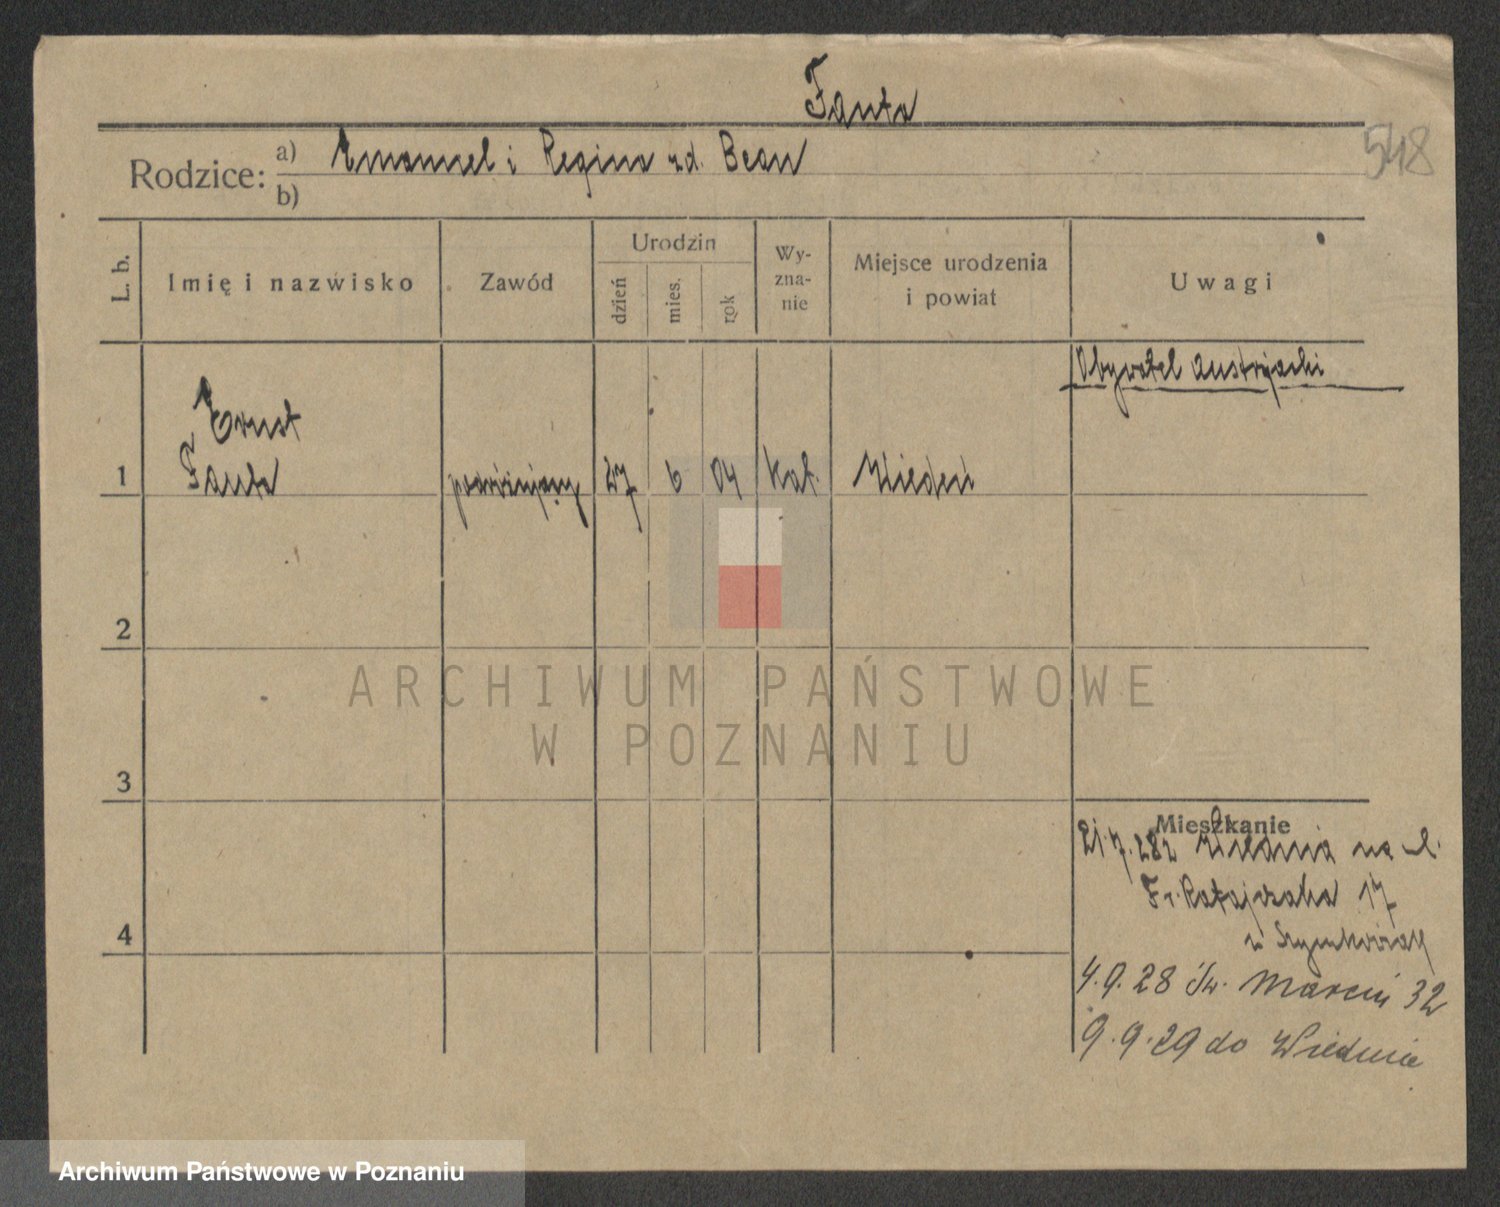 Fanta
548
Rodzice: a) Emanuel i Regina zd. Bean
b)
L. b.
Imię i nazwisko
Zawód
Urodzin
dzień
mies.
rok
Wy-
zna-
nie
Miejsce urodzenia
i powiat
Uwagi
Obywatel austrjacki
Ernst
1 Fanta podróżujący 27 6 04 kat. Wiedeń
2
3
4
Mieszkanie
21.7.28 z Wiednia na ul.
Fr. Ratajczaka 17
u Szymkowiak
4.9.28 Św. Marcin 32
9.9.29 do Wiednia
ARCHIWUM PAŃSTWOWE
W POZNANIU
Archiwum Państwowe w Poznaniu